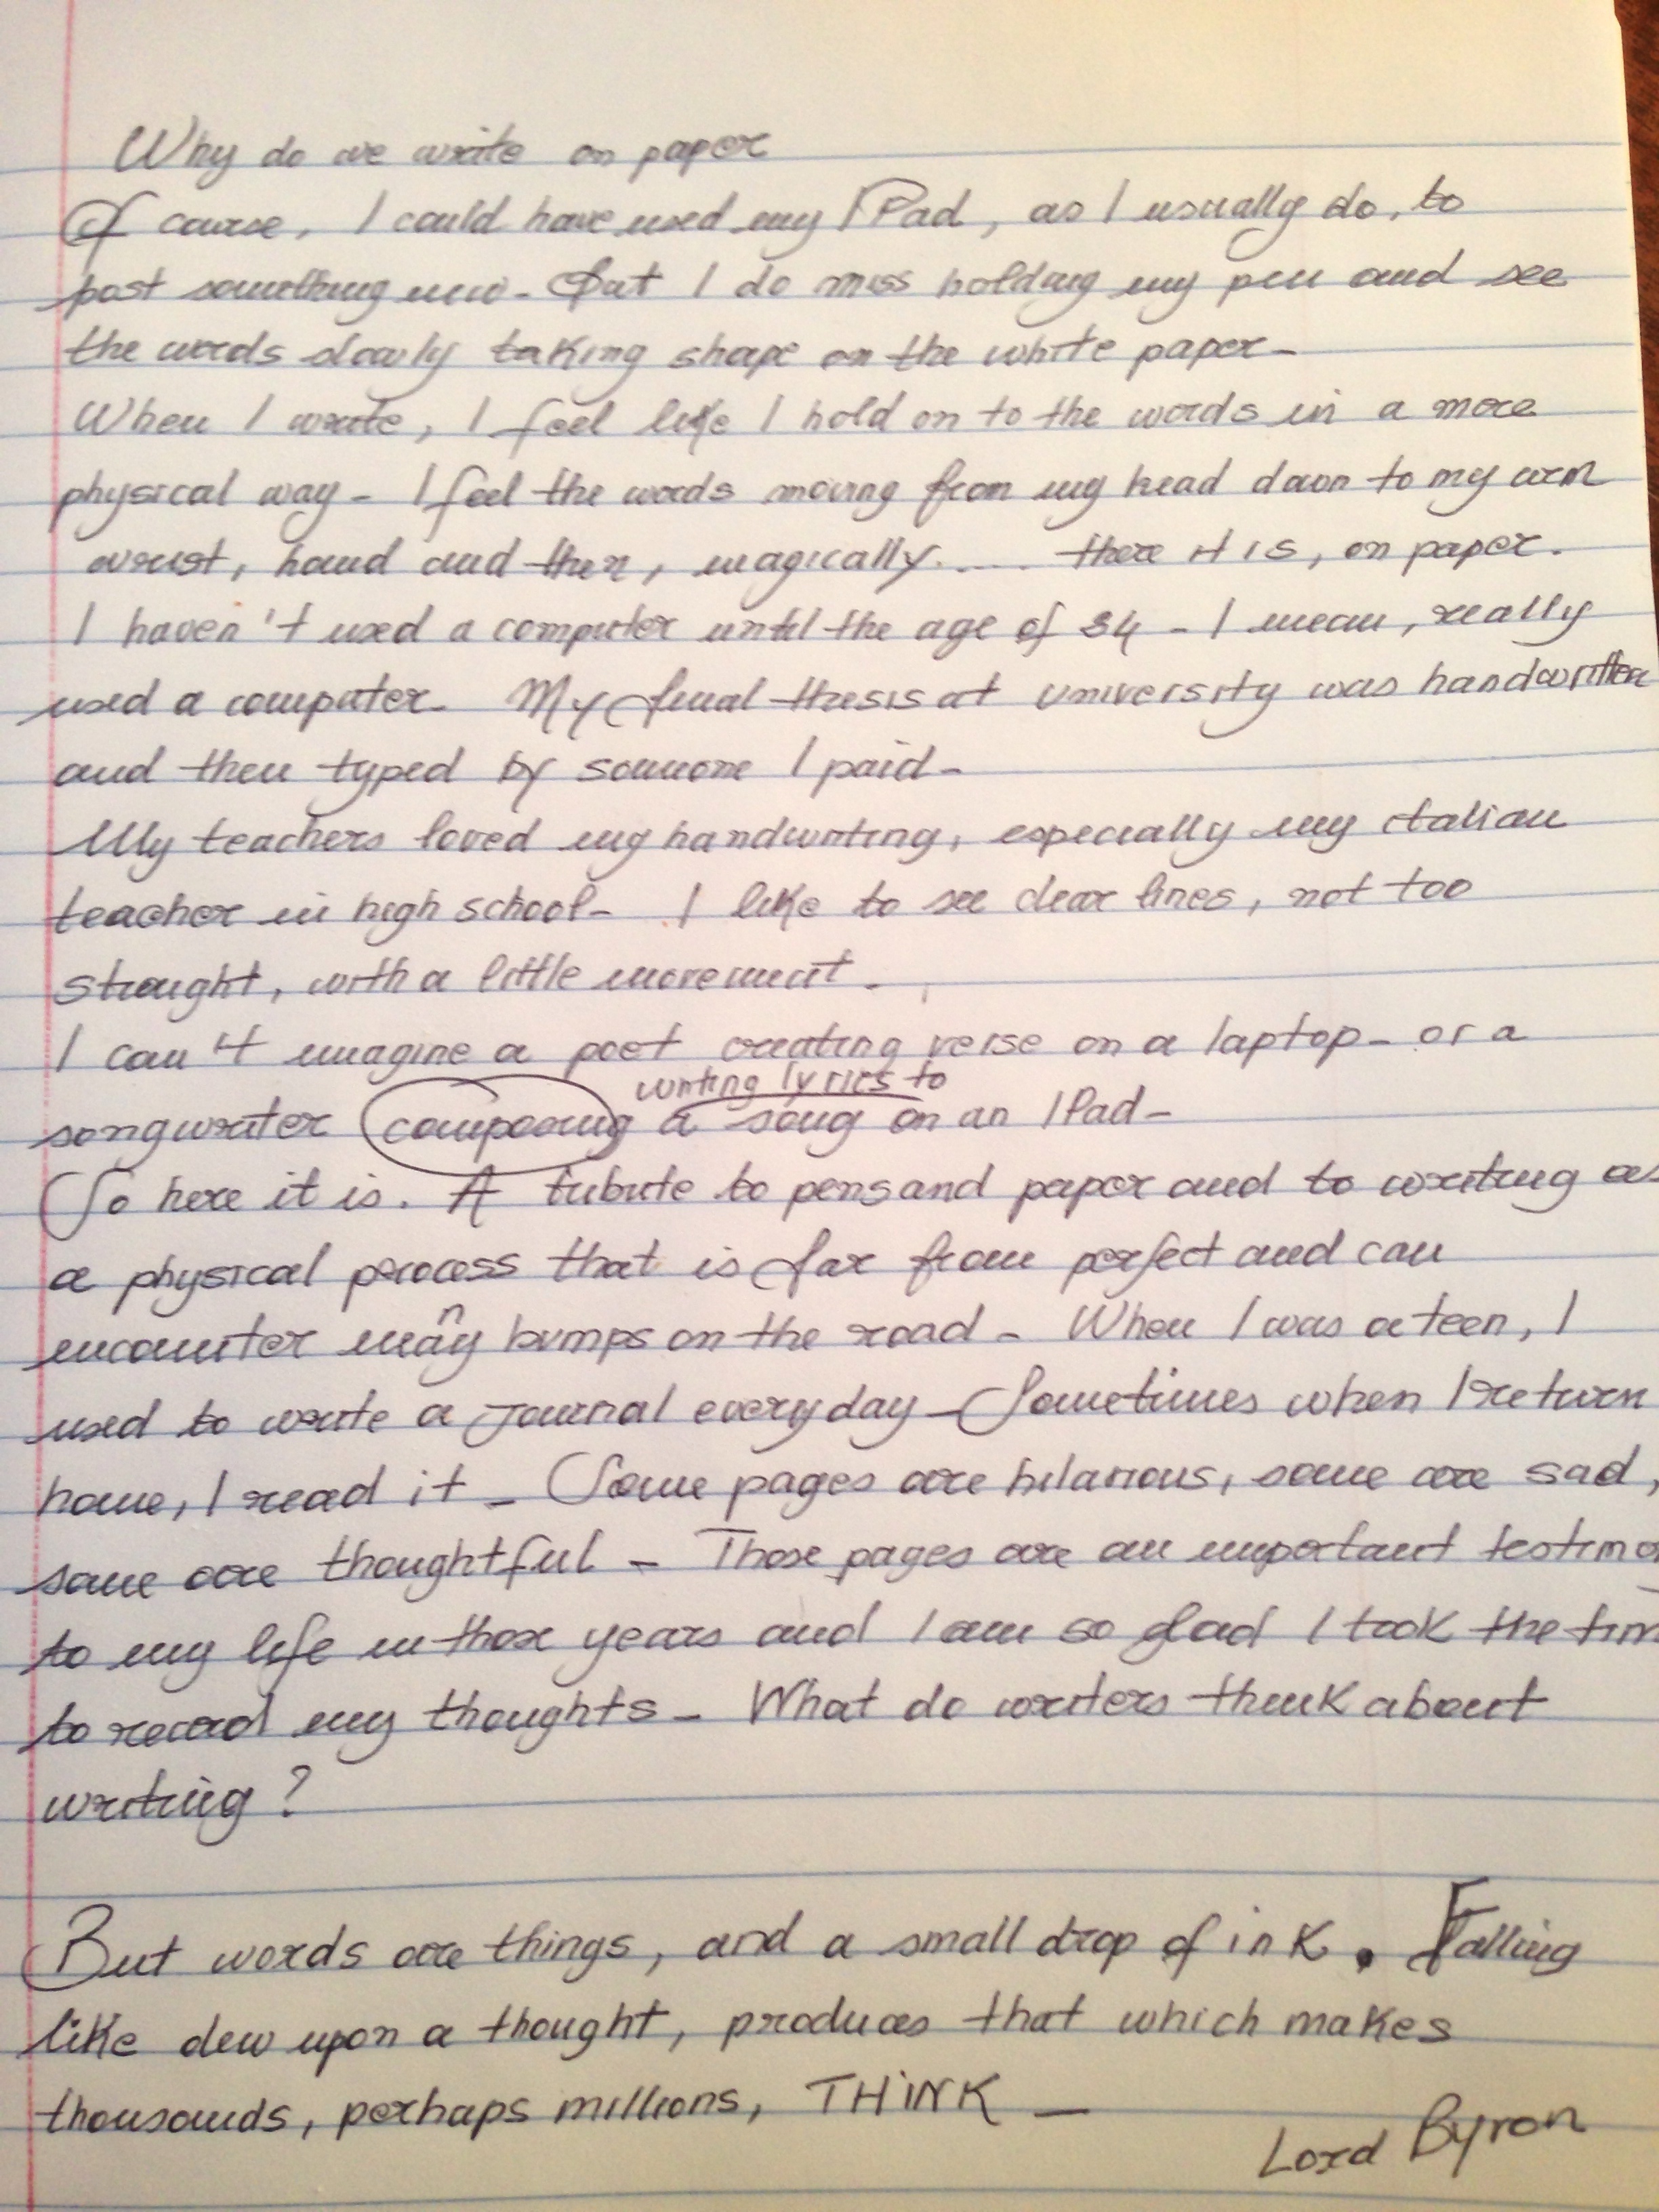 Why do we write on paper
Of course, I could have used my IPad, as I usually do, to
post something new - But I do miss holding my pen and see
the words slowly taking shape on the white paper -
When I write, I feel like I hold on to the words in a more
physical way - I feel the words moving from my head down to my arm
wrist, hand and then, magically..... there it is, on paper.
I haven't used a computer until the age of 34 - I mean, really
used a computer. My final thesis at university was handwritten
and then typed by someone I paid -
My teachers loved my handwriting, especially my Italian
teacher in high school - I like to see clear lines, not too
straight, with a little movement -
I can't imagine a poet creating verse on a laptop - or a
writing lyrics to
songwriter composing a song on an IPad -
So here it is. A tribute to pens and paper and to writing as
a physical process that is far from perfect and can
encounter many bumps on the road - When I was a teen, I
used to write a journal everyday - Sometimes when I return
home, I read it - Some pages are hilarious, some are sad,
some are thoughtful - Those pages are an important testimo
to my life in those years and I am so glad I took the tim
to record my thoughts - What do writers think about
writing?
But words are things, and a small drop of ink. Falling
like dew upon a thought, produces that which makes
thousands, perhaps millions, THINK -
Lord Byron